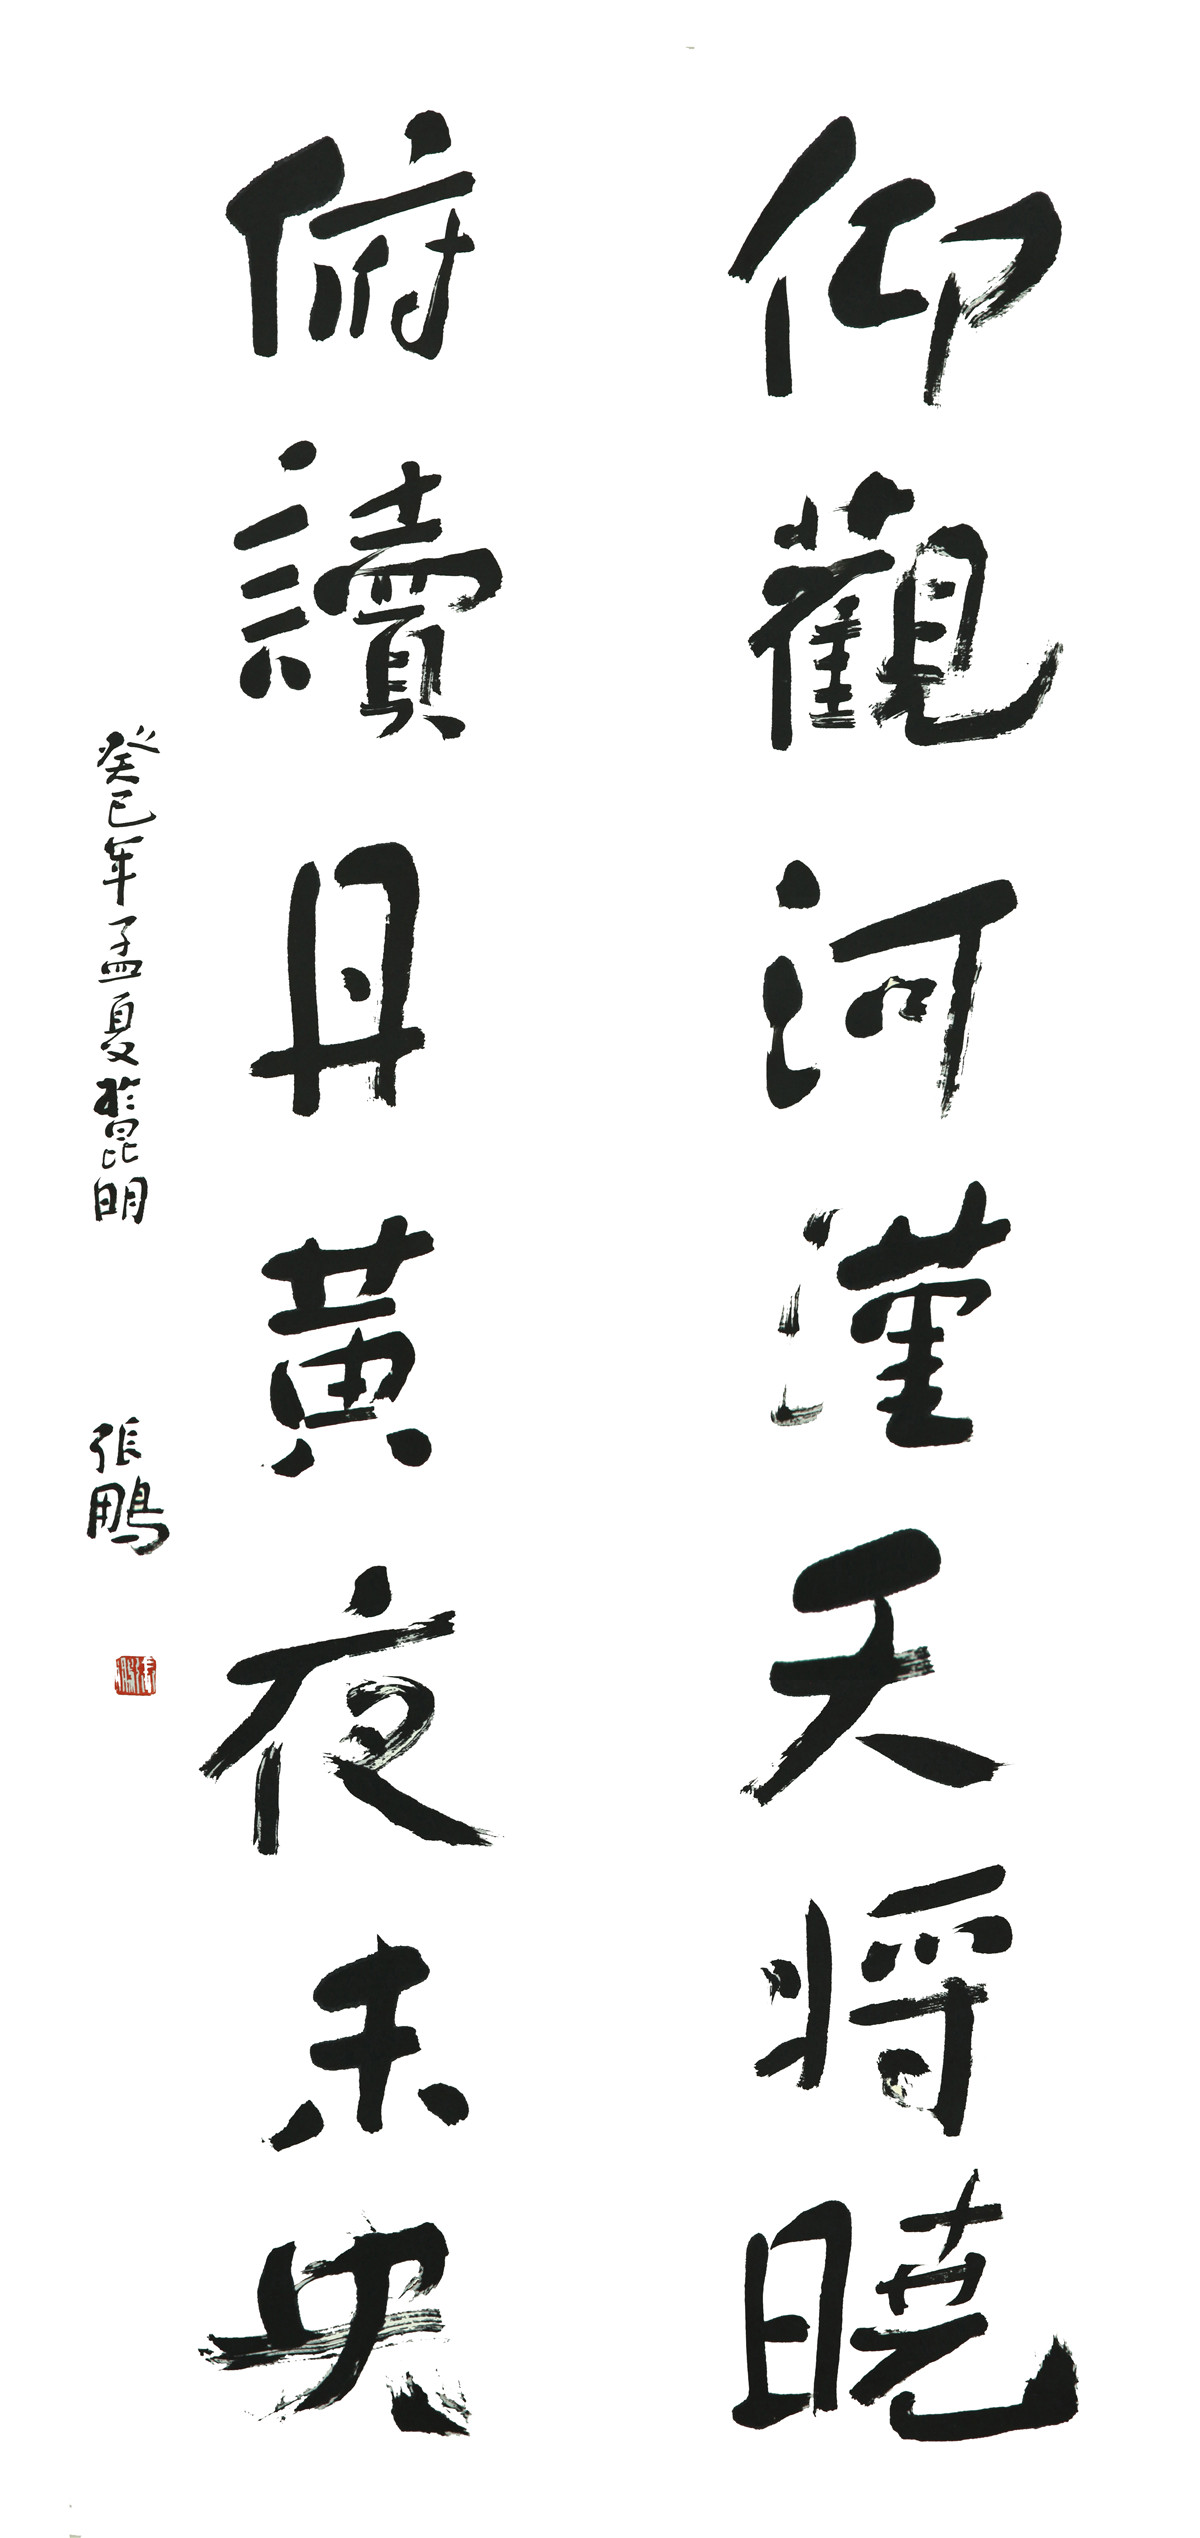 仰觀河漢天將曉
俯讀丹黃夜未央
癸巳年孟夏於昆明
張鵬